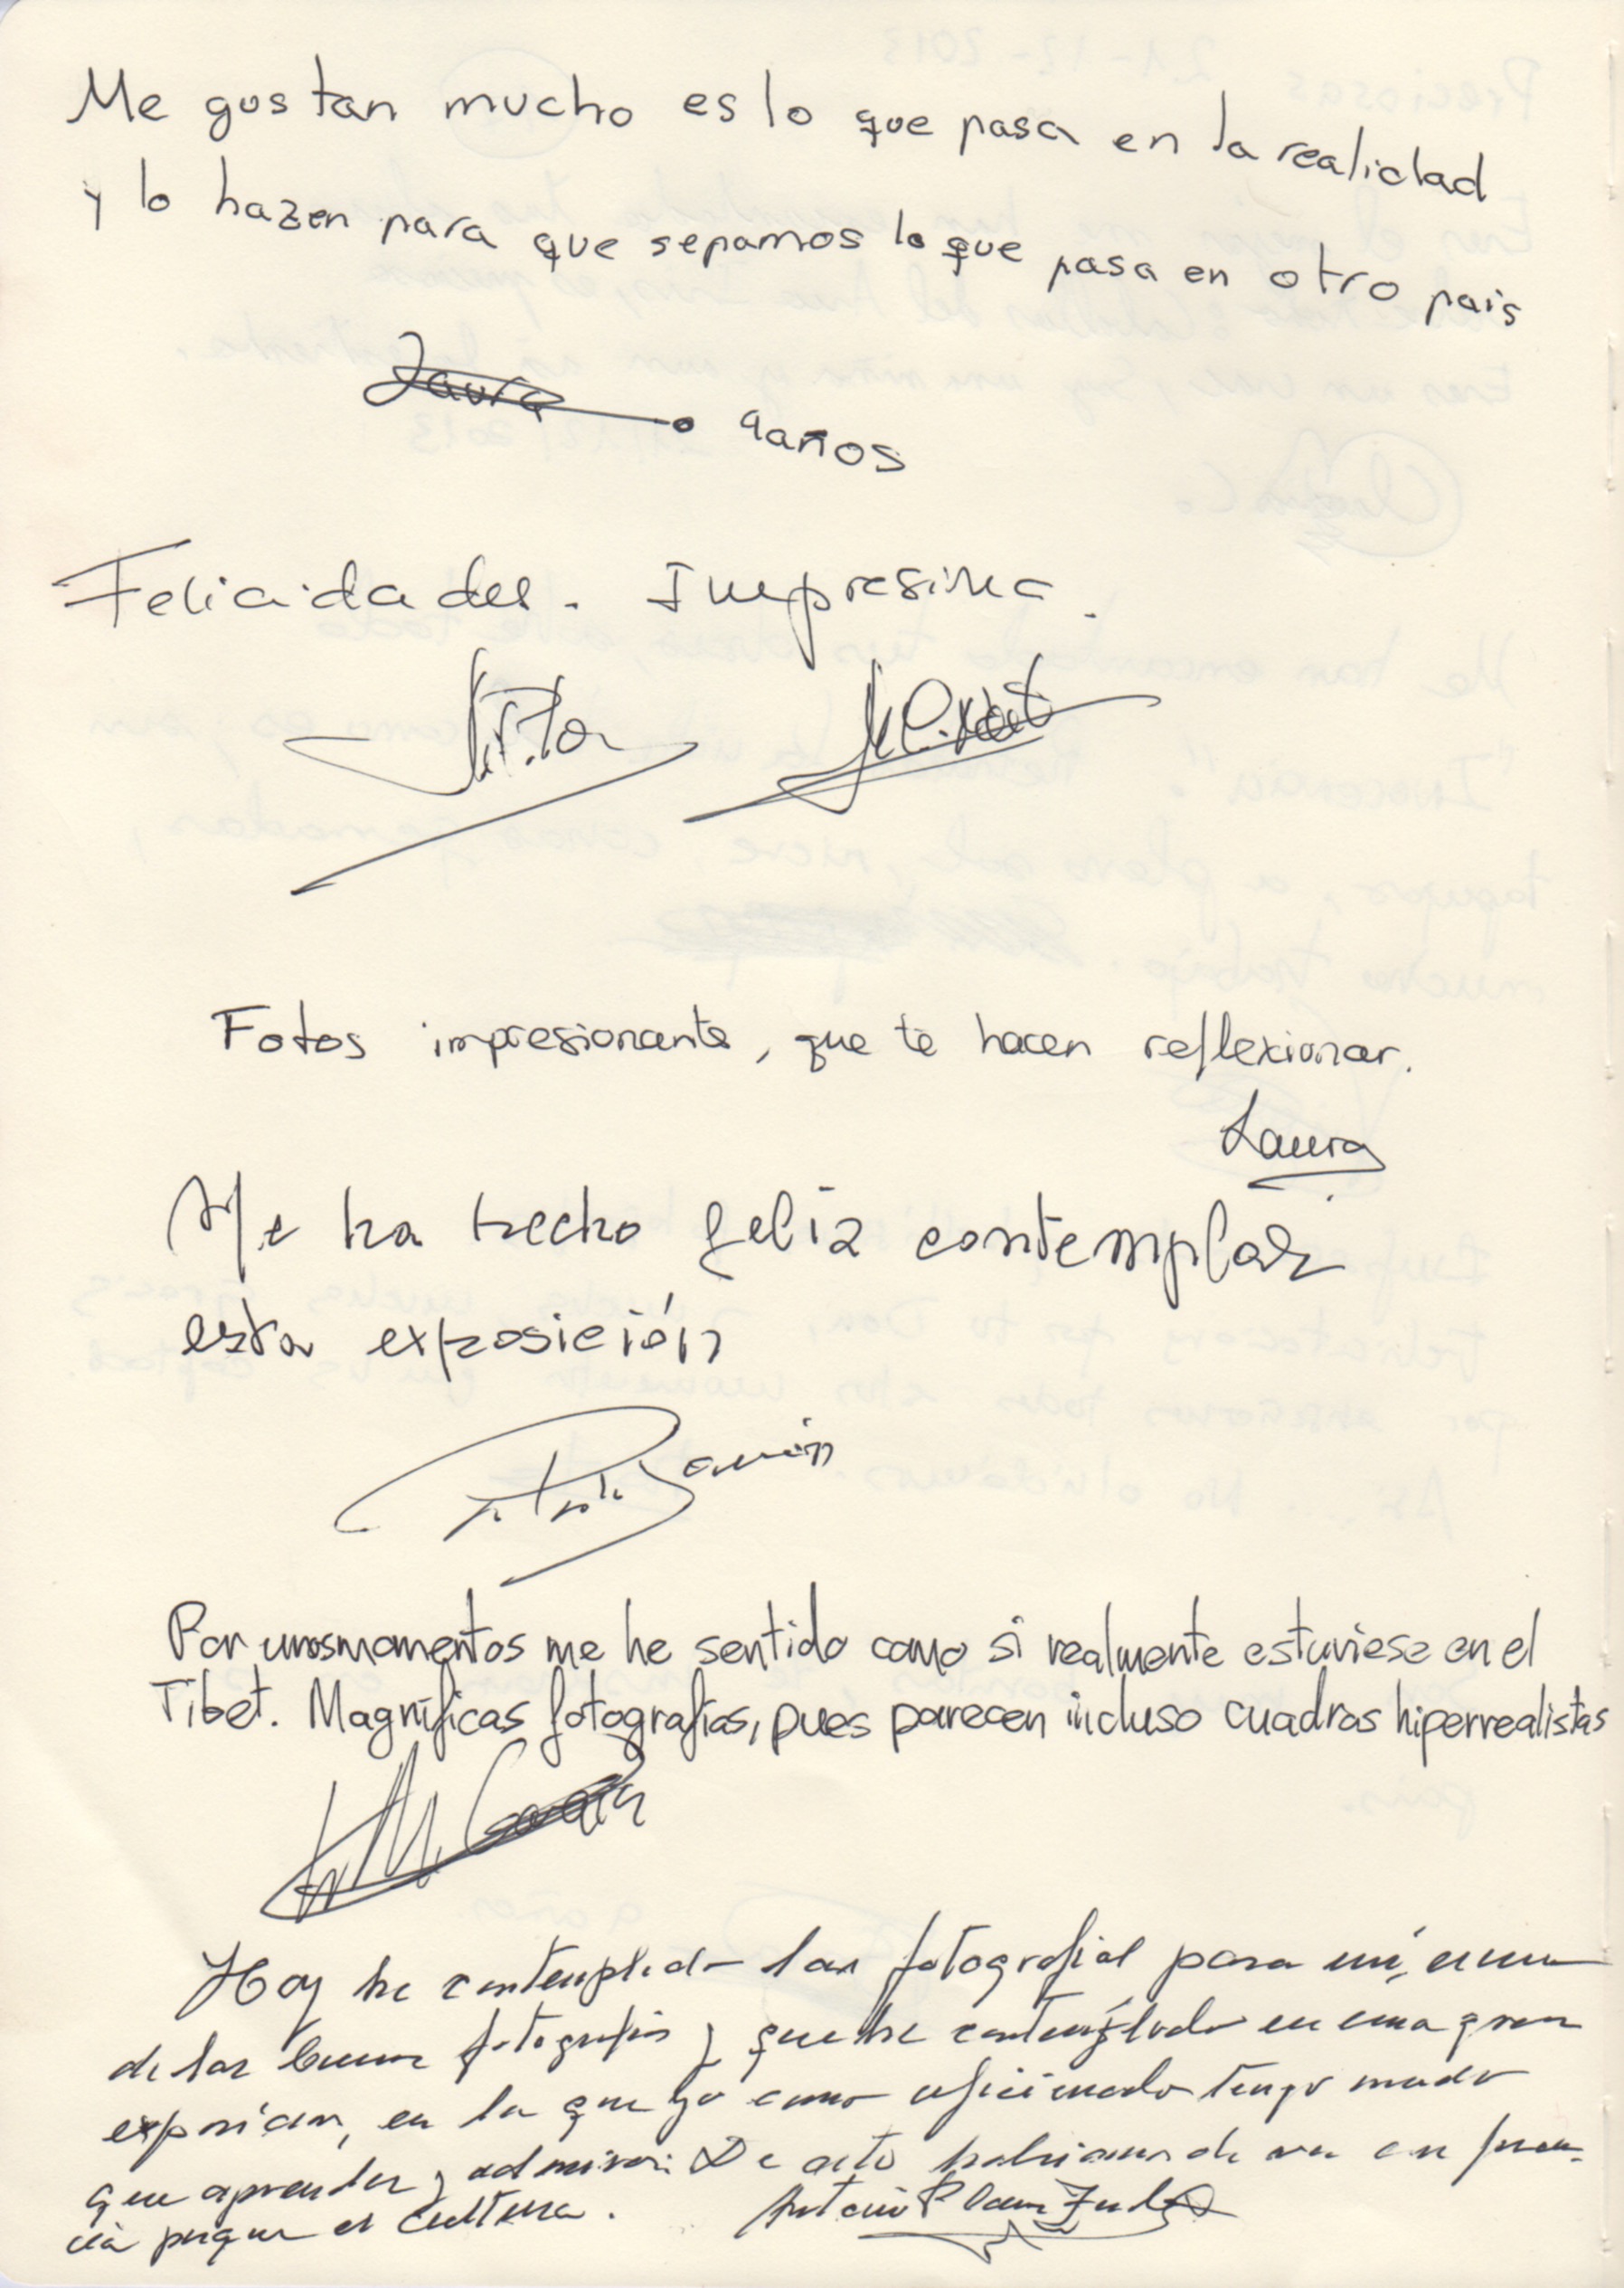 Me gustan mucho es lo que pasa en la realidad
y lo hazen para que sepamos lo que pasa en otro pais
Laura 9años
Felicidades.
Fotos impresionante, que te hacen reflexionar.
Laura
Me ha hecho feliz contemplar
esta exposición
Ramón
Por unos momentos me he sentido como si realmente estuviese en el
Tibet. Magníficas fotografías, pues parecen incluso cuadros hiperrealistas
Hoy he contemplado las fotografias para mí,
de las buenas fotografias y que he contemplado en una gran
exposición, en la que yo como aficionado tengo mucho
que aprender y admirar. De esto habriamos de ver con frecuen-
cia porque es cultura. Antonio